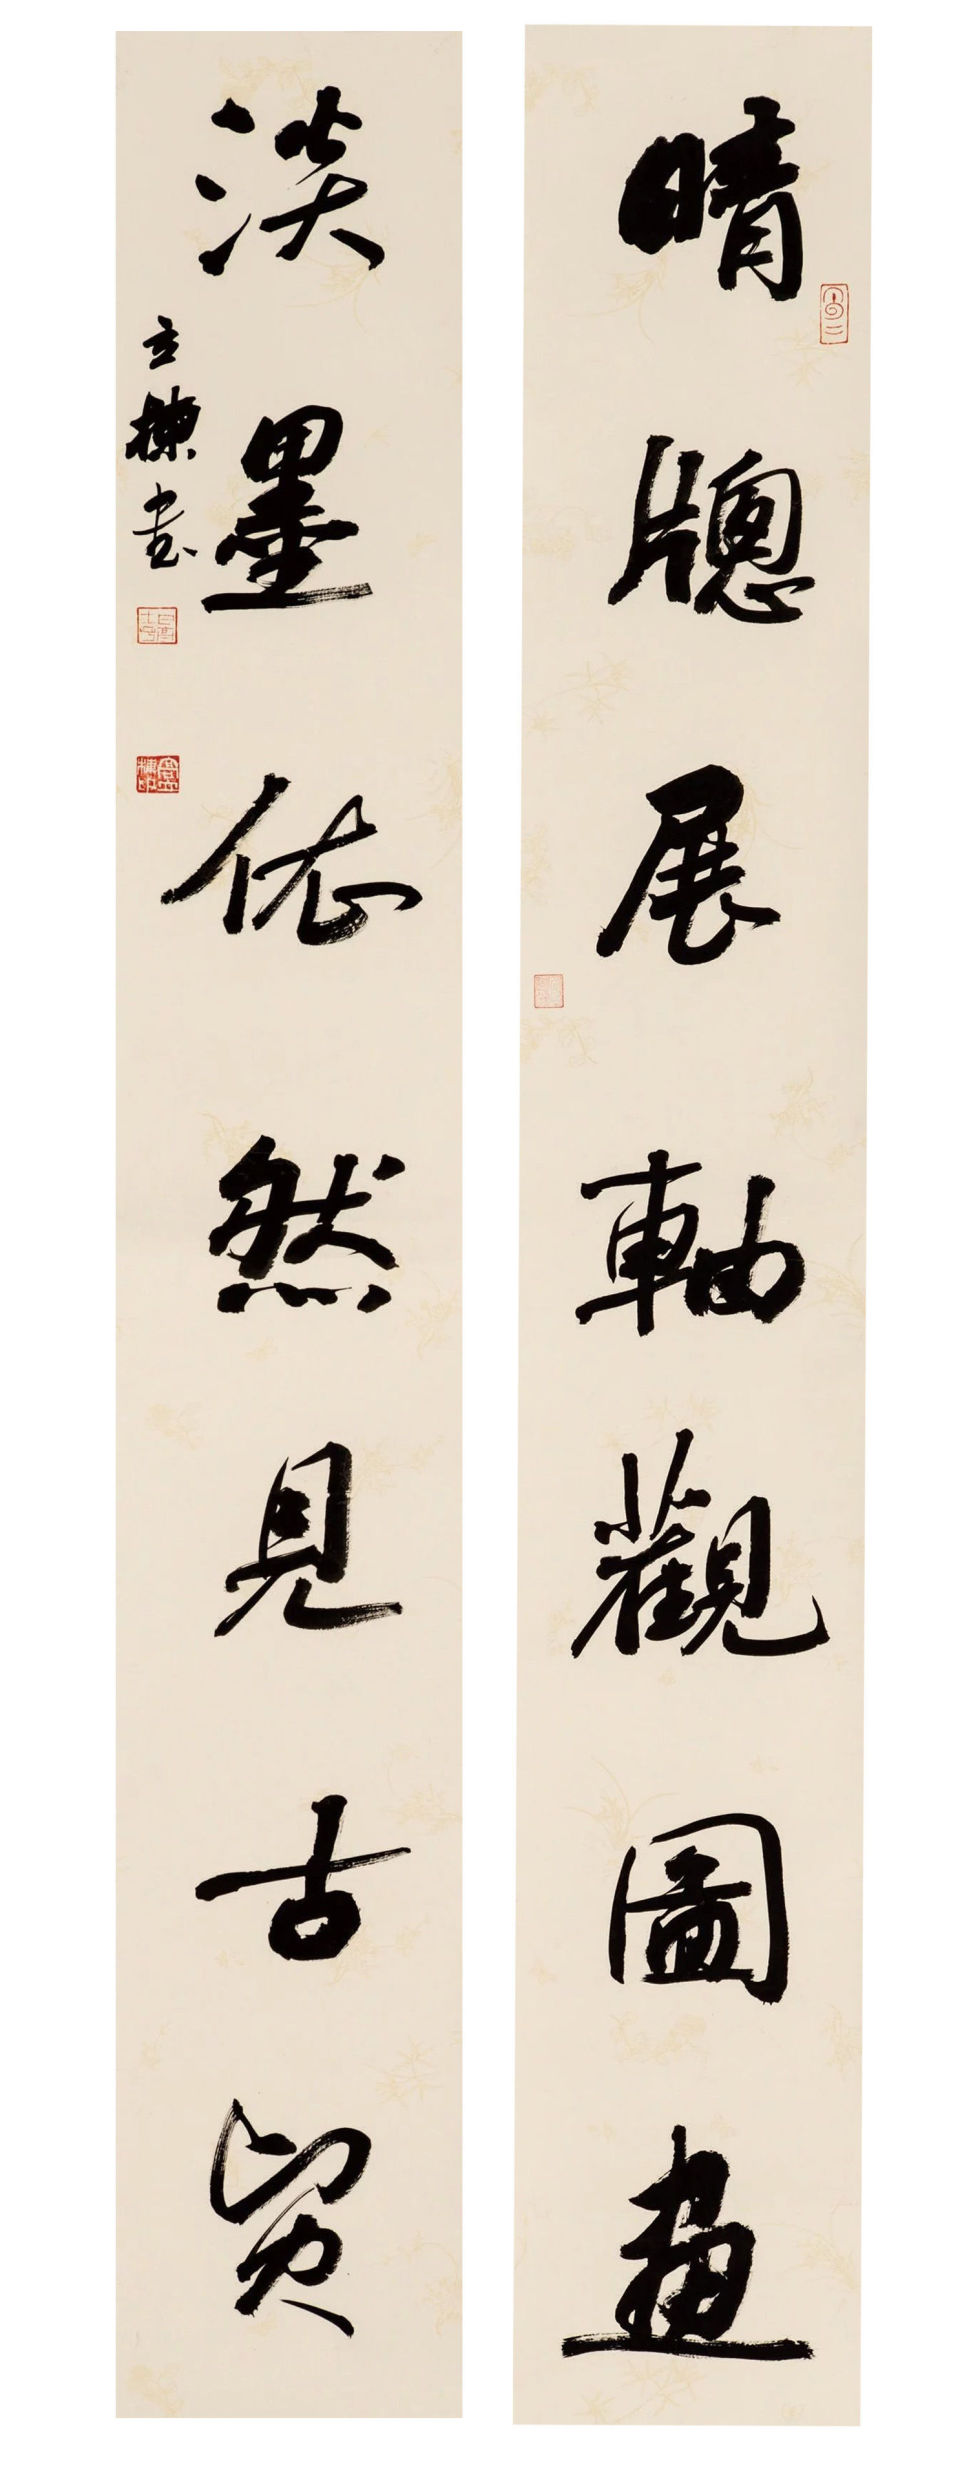 晴牕展軸觀圖畫
淡墨依然見古賢
立棟書